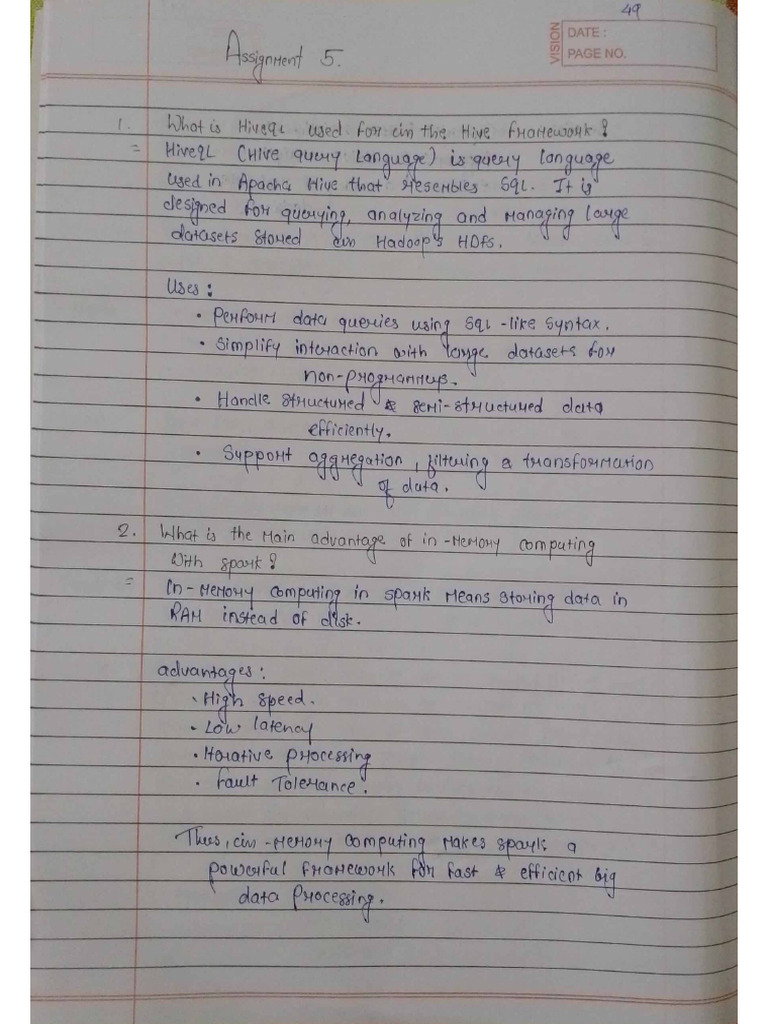 49
VISION
DATE :
PAGE NO.
Assignment 5.
1. What is HiveQL used for in the Hive framework?
= HiveQL (Hive query language) is query language
used in Apacha Hive that resembles SQL. It is
designed for querying, analyzing and managing large
datasets stored in Hadoop's HDFs.
Uses :
• Perform data queries using SQL-like syntax.
• Simplify interaction with large datasets for
non-programmers.
• Handle structured & semi-structured data
efficiently.
• Support aggregation, filtering & transformation
of data.
2. What is the main advantage of in-memory computing
with spark?
= In-memory computing in spark means storing data in
RAM instead of disk.
advantages :
• High speed.
• Low latency
• Iterative processing
• fault Tolerance.
Thus, in-memory computing makes spark a
powerful framework for fast & efficient big
data processing.